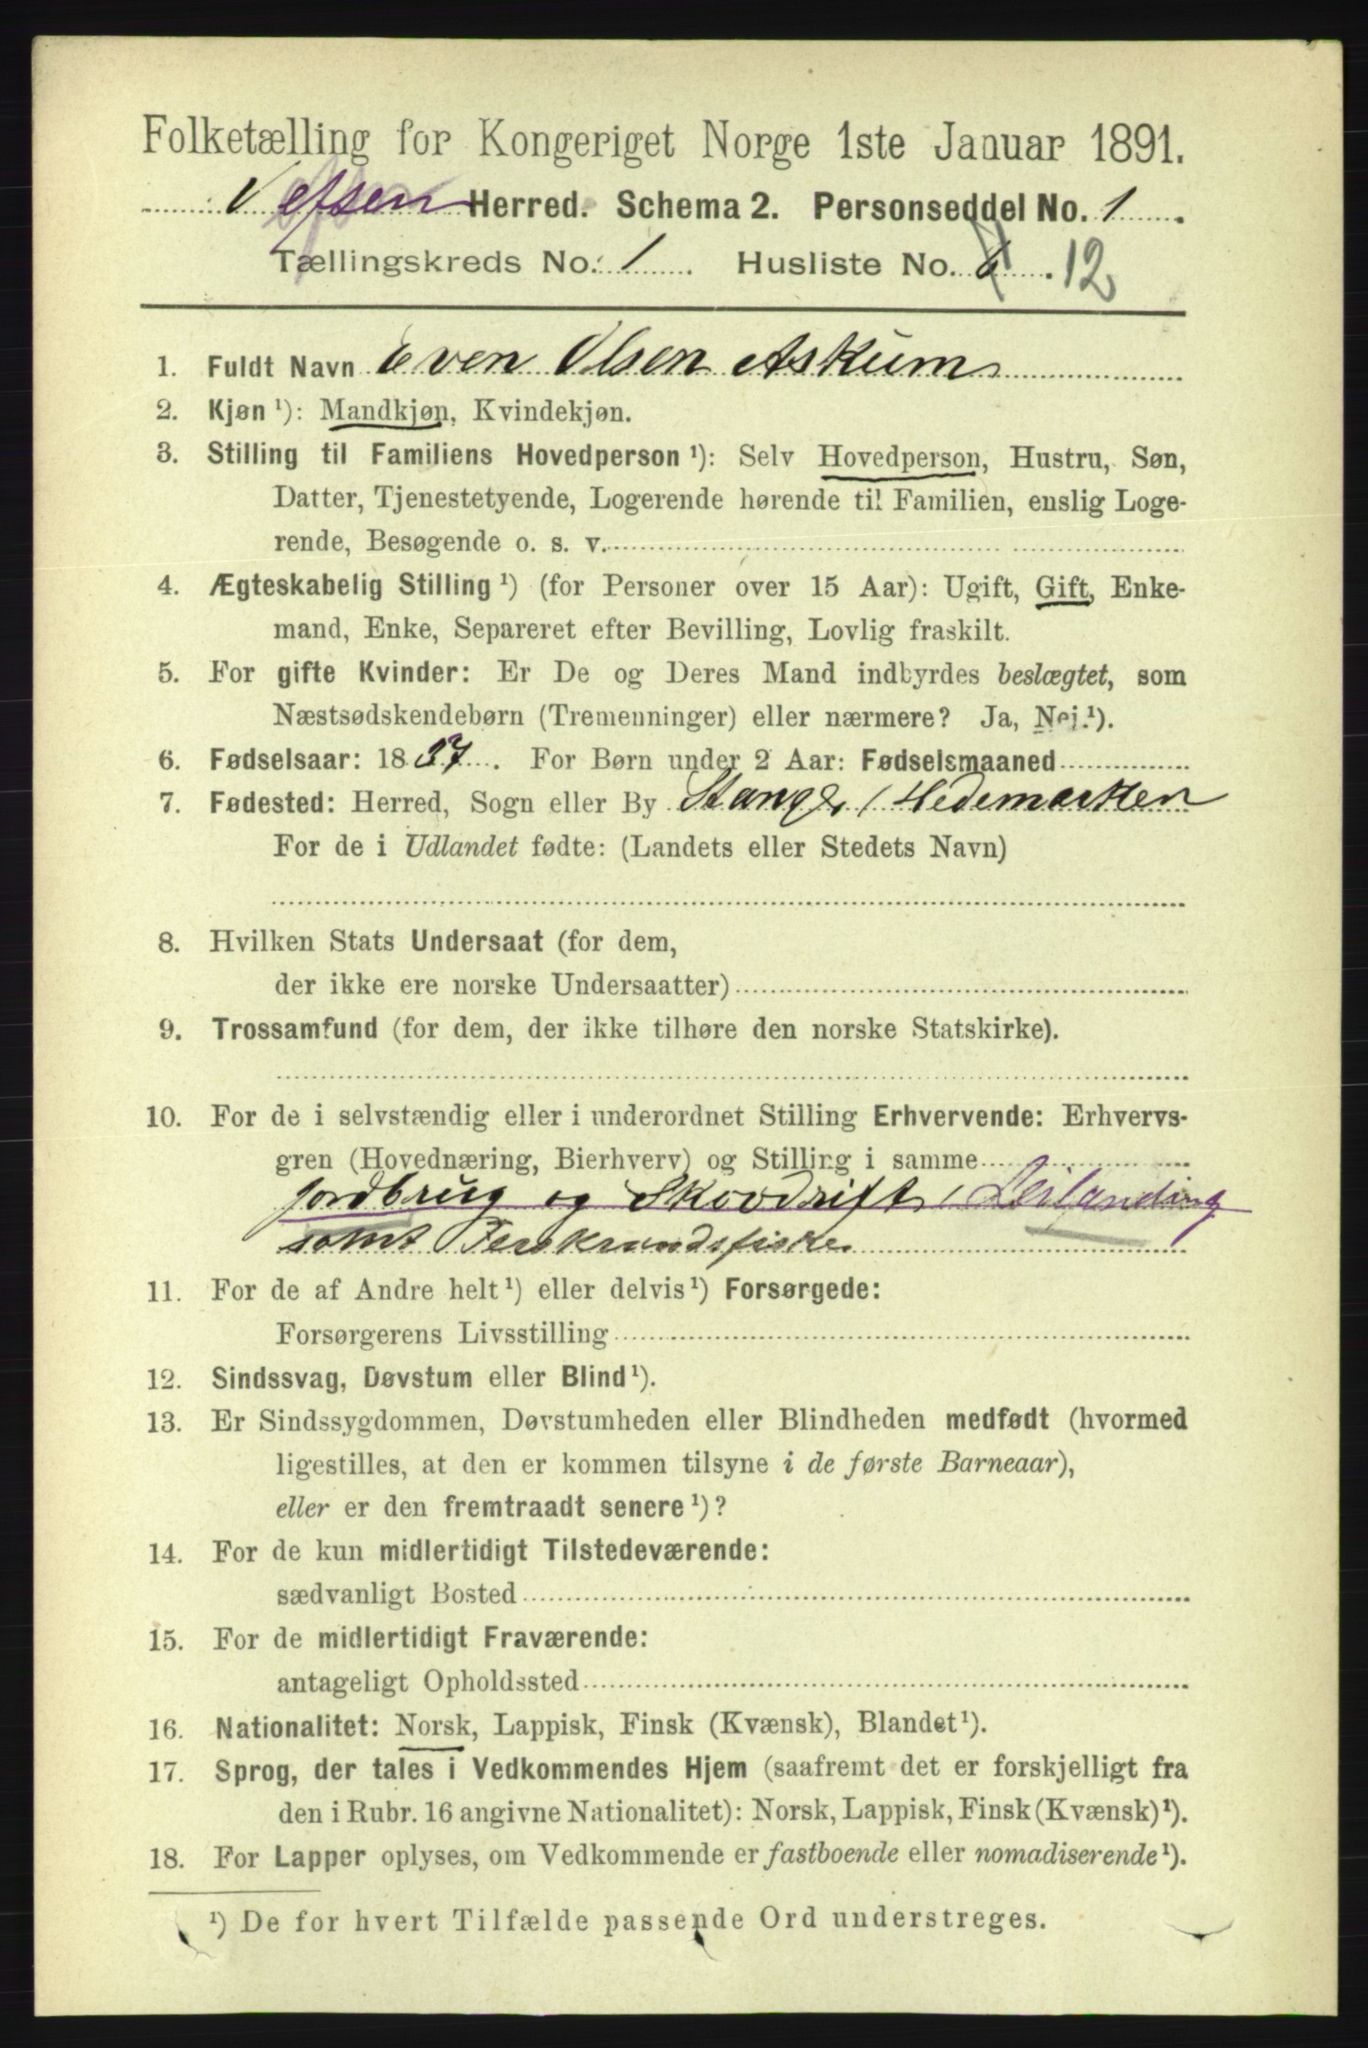 Folketælling for Kongeriget Norge 1ste Januar 1891.
Vefsen Herred. Schema 2. Personseddel No. 1
Tællingskreds No. 1. Husliste No. 6. 12
1. Fuldt Navn Even Olsen Askum
2. Kjøn¹): Mandkjøn, Kvindekjøn.
3. Stilling til Familiens Hovedperson¹): Selv Hovedperson, Hustru, Søn,
Datter, Tjenestetyende, Logerende hørende til Familien, enslig Loge-
rende, Besøgende o. s. v.
4. Ægteskabelig Stilling¹) (for Personer over 15 Aar): Ugift, Gift, Enke-
mand, Enke, Separeret efter Bevilling, Lovlig fraskilt.
5. For gifte Kvinder: Er De og Deres Mand indbyrdes beslægtet, som
Næstsødskendebørn (Tremenninger) eller nærmere? Ja, Nej.¹).
6. Fødselsaar: 1837. For Børn under 2 Aar: Fødselsmaaned
7. Fødested: Herred, Sogn eller By Stange / Hedemarken
For de i Udlandet fødte: (Landets eller Stedets Navn)
8. Hvilken Stats Undersaat (for dem,
der ikke ere norske Undersaatter)
9. Trossamfund (for dem, der ikke tilhøre den norske Statskirke).
10. For de i selvstændig eller i underordnet Stilling Erhvervende: Erhvervs-
gren (Hovednæring, Bierhverv) og Stilling i samme
jordbrug og Skovdrift, Leilænding
samt Ferskvandsfiske
11. For de af Andre helt¹) eller delvis¹) Forsørgede:
Forsørgerens Livsstilling
12. Sindssvag, Døvstum eller Blind¹).
13. Er Sindssygdommen, Døvstumheden eller Blindheden medfødt (hvormed
ligestilles, at den er kommen tilsyne i de første Barneaar),
eller er den fremtraadt senere¹)?
14. For de kun midlertidigt Tilstedeværende:
sædvanligt Bosted
15. For de midlertidigt Fraværende:
antageligt Opholdssted
16. Nationalitet: Norsk, Lappisk, Finsk (Kvænsk), Blandet¹).
17. Sprog, der tales i Vedkommendes Hjem (saafremt det er forskjelligt fra
den i Rubr. 16 angivne Nationalitet): Norsk, Lappisk, Finsk (Kvænsk)¹).
18. For Lapper oplyses, om Vedkommende er fastboende eller nomadiserende¹).
¹) De for hvert Tilfælde passende Ord understreges.